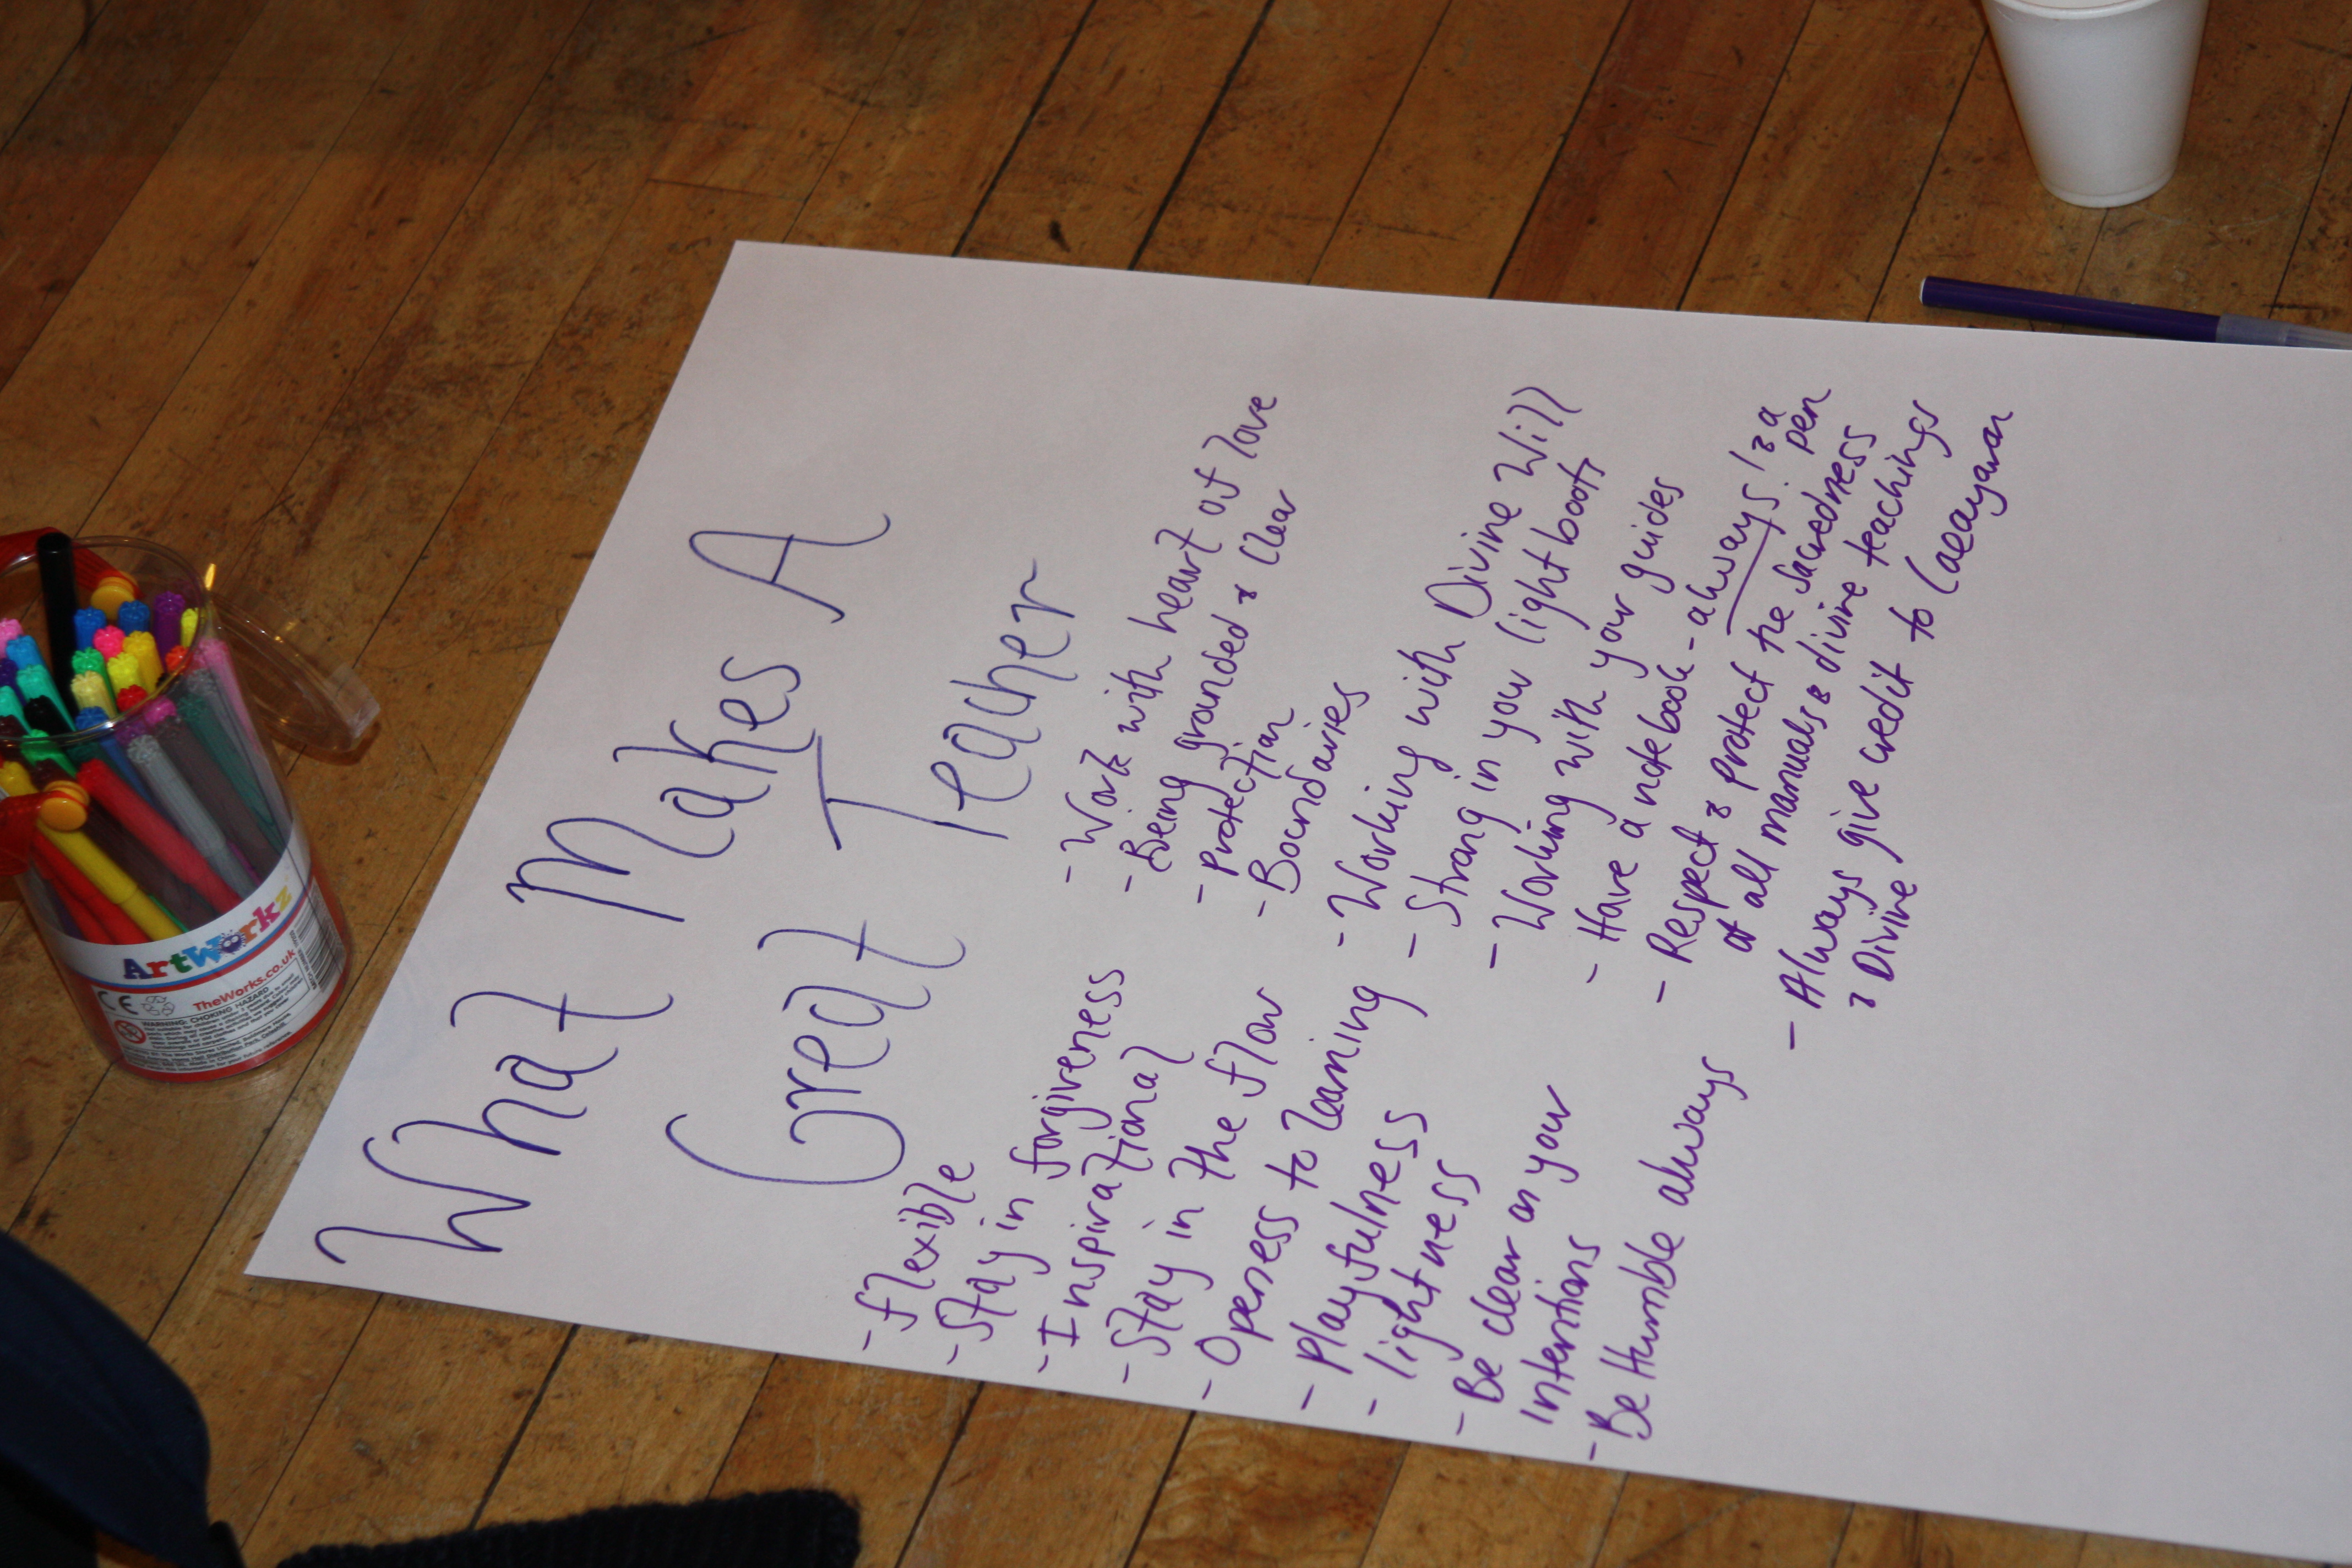 What Makes A
Great Teacher
- flexible
- Stay in forgiveness
- Inspirational
- Stay in the flow
- Openess to learning
- Playfulness
- lightness
- Be clear on your
intentions
- Be Humble always
- Work with heart of love
- Being grounded & Clear
- Protection
- Boundaries
- Working with Divine Will
- Strong in your light body
- Working with your guides
- Have a notebook - always! & a
pen
- Respect & Protect the Sacredness
of all manuals & divine teachings
- Always give credit to
& Divine
ArtWorkz
TheWorks.co.uk
CE
WARNING: CHOKING HAZARD